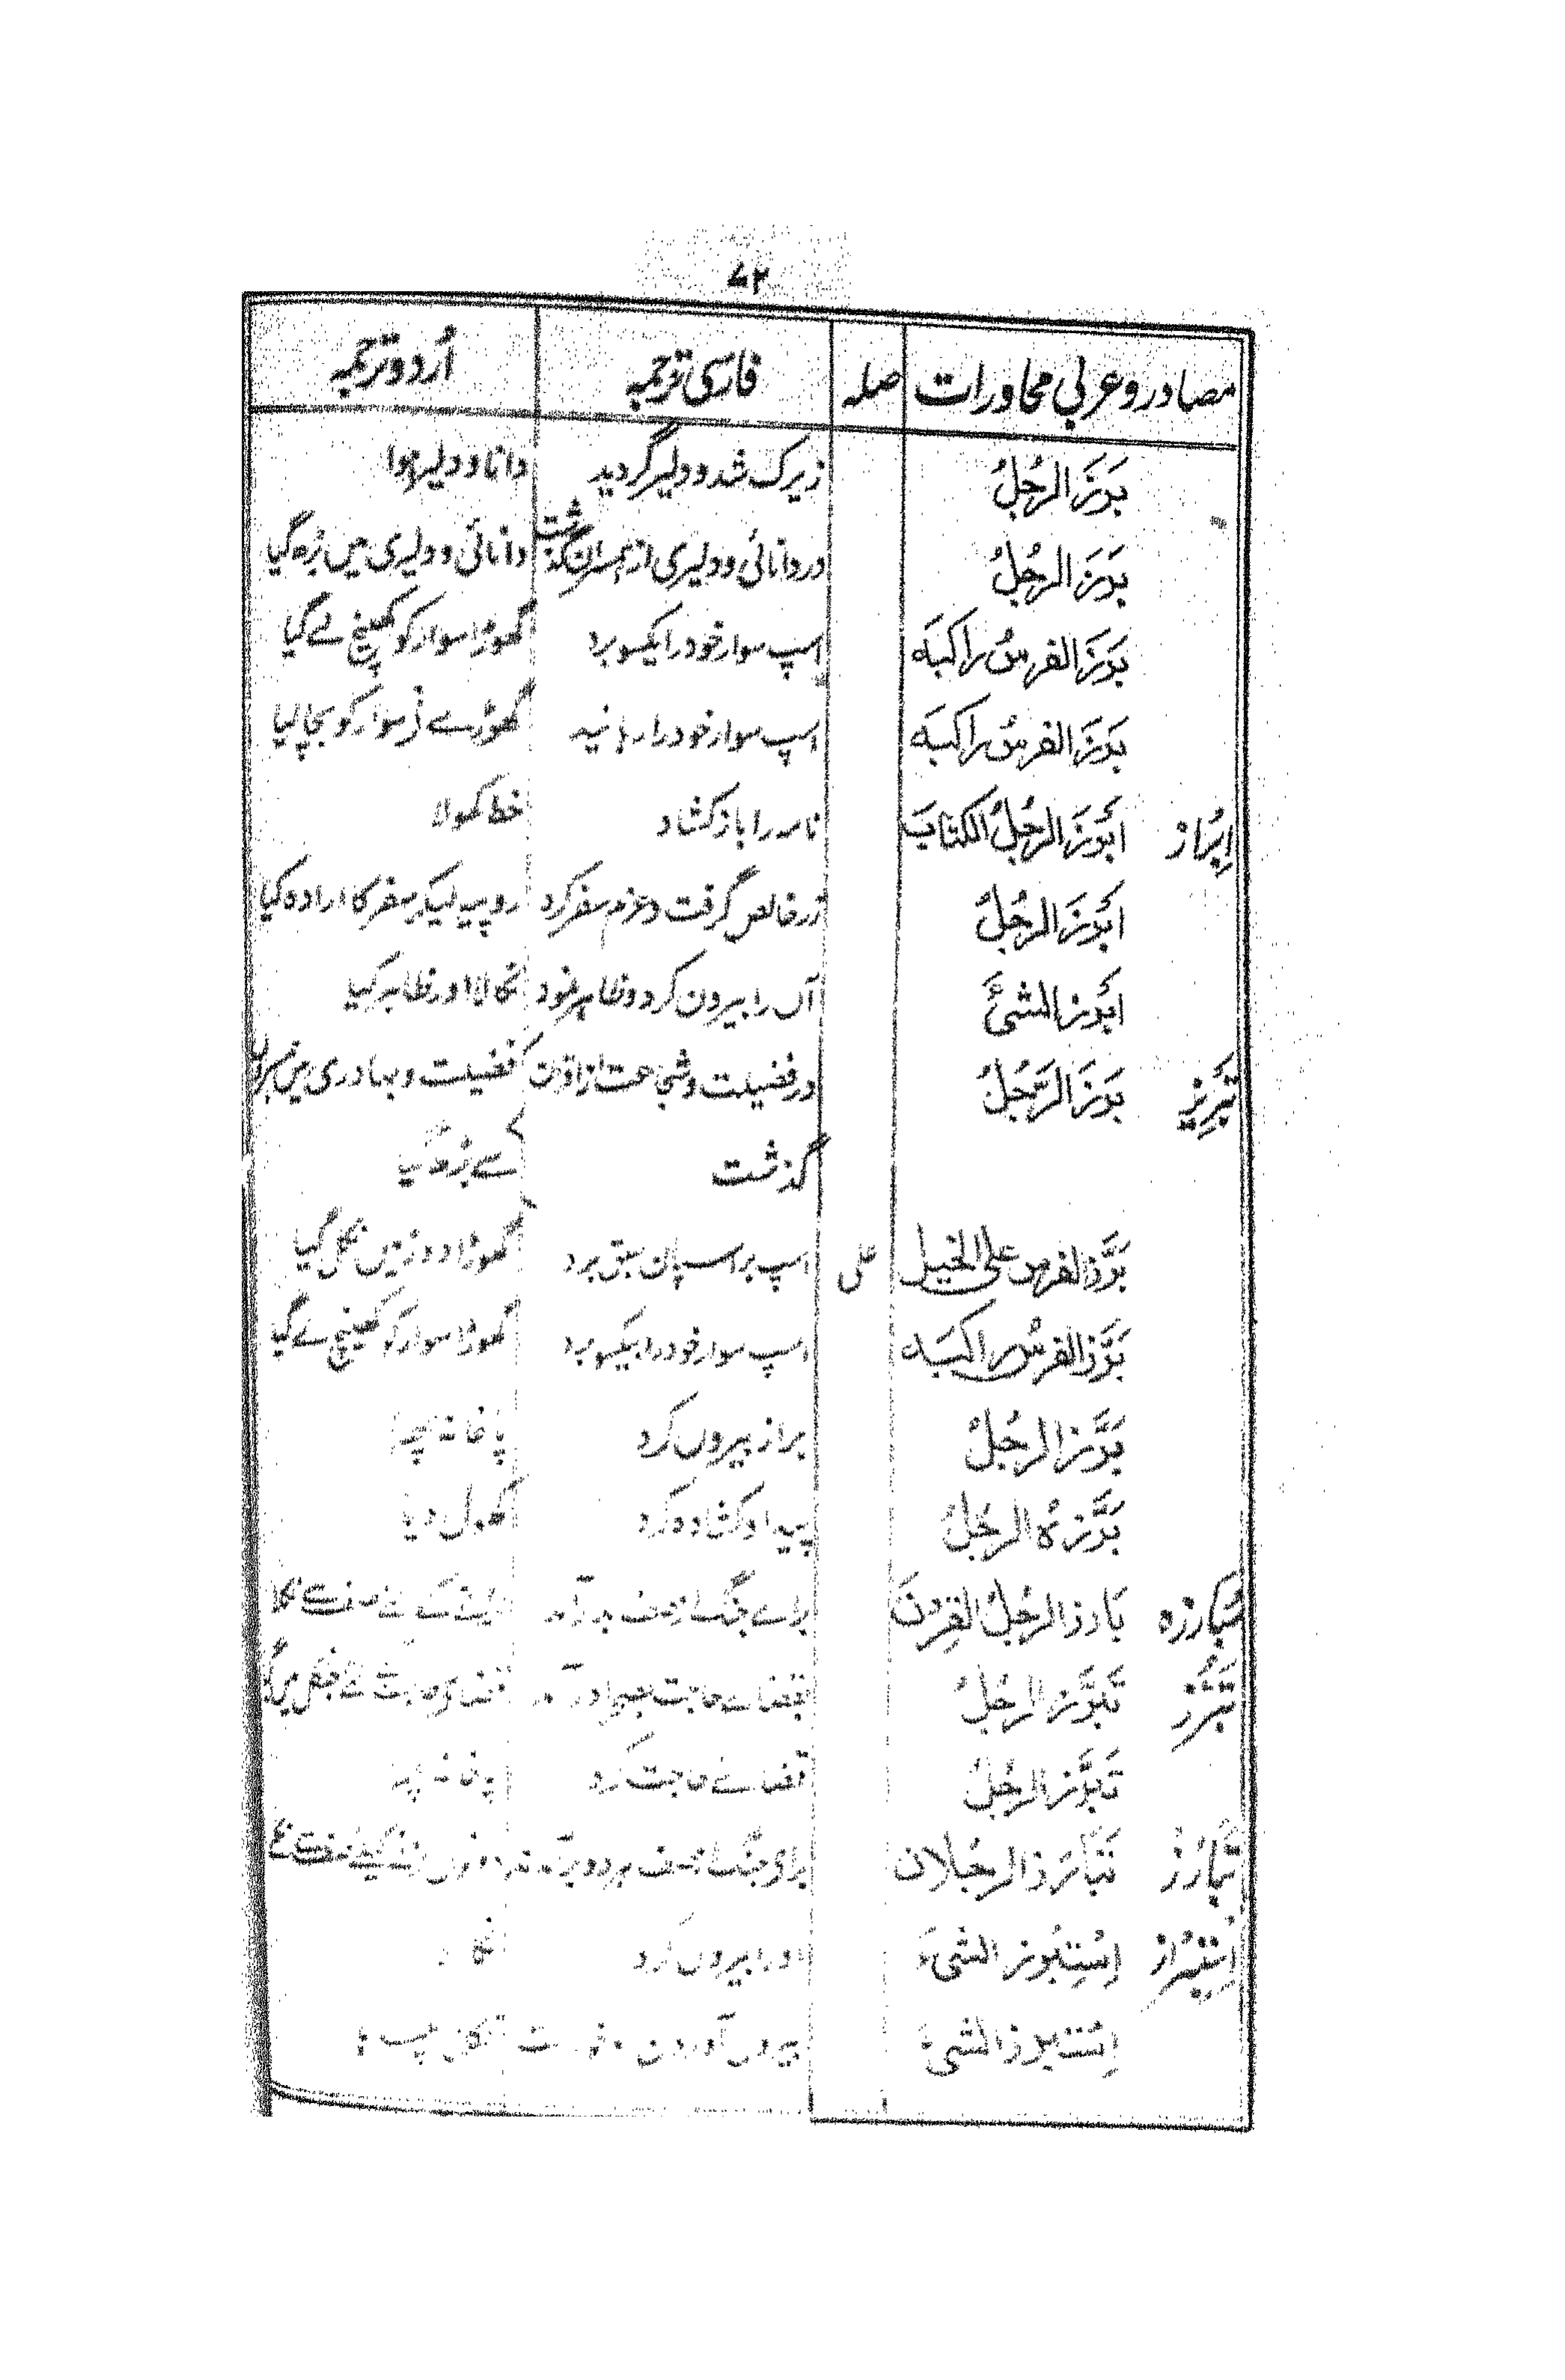 ۷۲
مصادر و عربی محاورات صلہ فارسی ترجمہ اُردو ترجمہ
بَرَزَ الرجُلُ زیرک شد و دلیر گردید دانا و دلیر ہوا
بَرَزَ الرجُلُ در دانائی و دلیری از ہمسران گذشت دانائی و دلیری میں بڑہ گیا
بَرَزَ الفرسُ راکبَہ اسپ سوار خود را یکسو برد گھوڑا سوار کو کھینچ لے گیا
بَرَزَ الفرسُ راکبَہ اسپ سوار خود را رہانید گھوڑے نے سوار کو بچا لیا
اِبْراز أبرَزَ الرجُلُ الکتابَ نامہ را باز کشاد خط کھولا
أبرَزَ الرجُلُ زر خالص گرفت و عزم سفر کرد روپیہ لیکر سفر کا ارادہ کیا
أبرز الشیَٔ آں را بیرون کرد و ظاہر نمود نکالا اور ظاہر کیا
تَبْرِیْز بَرَزَ الرَّجُلُ در فضیلت و شجاعت از اقران فضیلت و بہادری میں ہمسروں
گذشت سے بڑھ گیا
بَرَّزَ الفرس علی الخیل علی اسپ بر اسپان سبق برد گھوڑا دوڑ میں نکل گیا
بَرَّزَ الفرسُ راکبَہ اسپ سوار خود را یکسو برد گھوڑا سوار کو کھینچ لے گیا
بَرَّزَ الرجُلُ براز بیروں کرد پاخانہ
بَرَّزہُ الرجُلُ پیدا و کشادہ کرد کھول دیا
مُبارزہ بَارز الرجُلُ القِرنَ براے جنگ از صف بر آمد صف سے نکلا
تَبَرُّز تَبَرَّزَ الرجُلُ بقضاے حاجت بصحرا در آمد قضاے حاجت جنگل
تَبَرَّزَ الرجُلُ قضاے حاجت کرد
تَبارُز تَبَارَز الرجُلان برای جنگ از صف ہر دو بر آمدند دونوں
اِسْتِبْراز اِسْتبرز الشیءَ او را بیروں کرد
اِسْتبرز الشیءَ بیروں آوردن